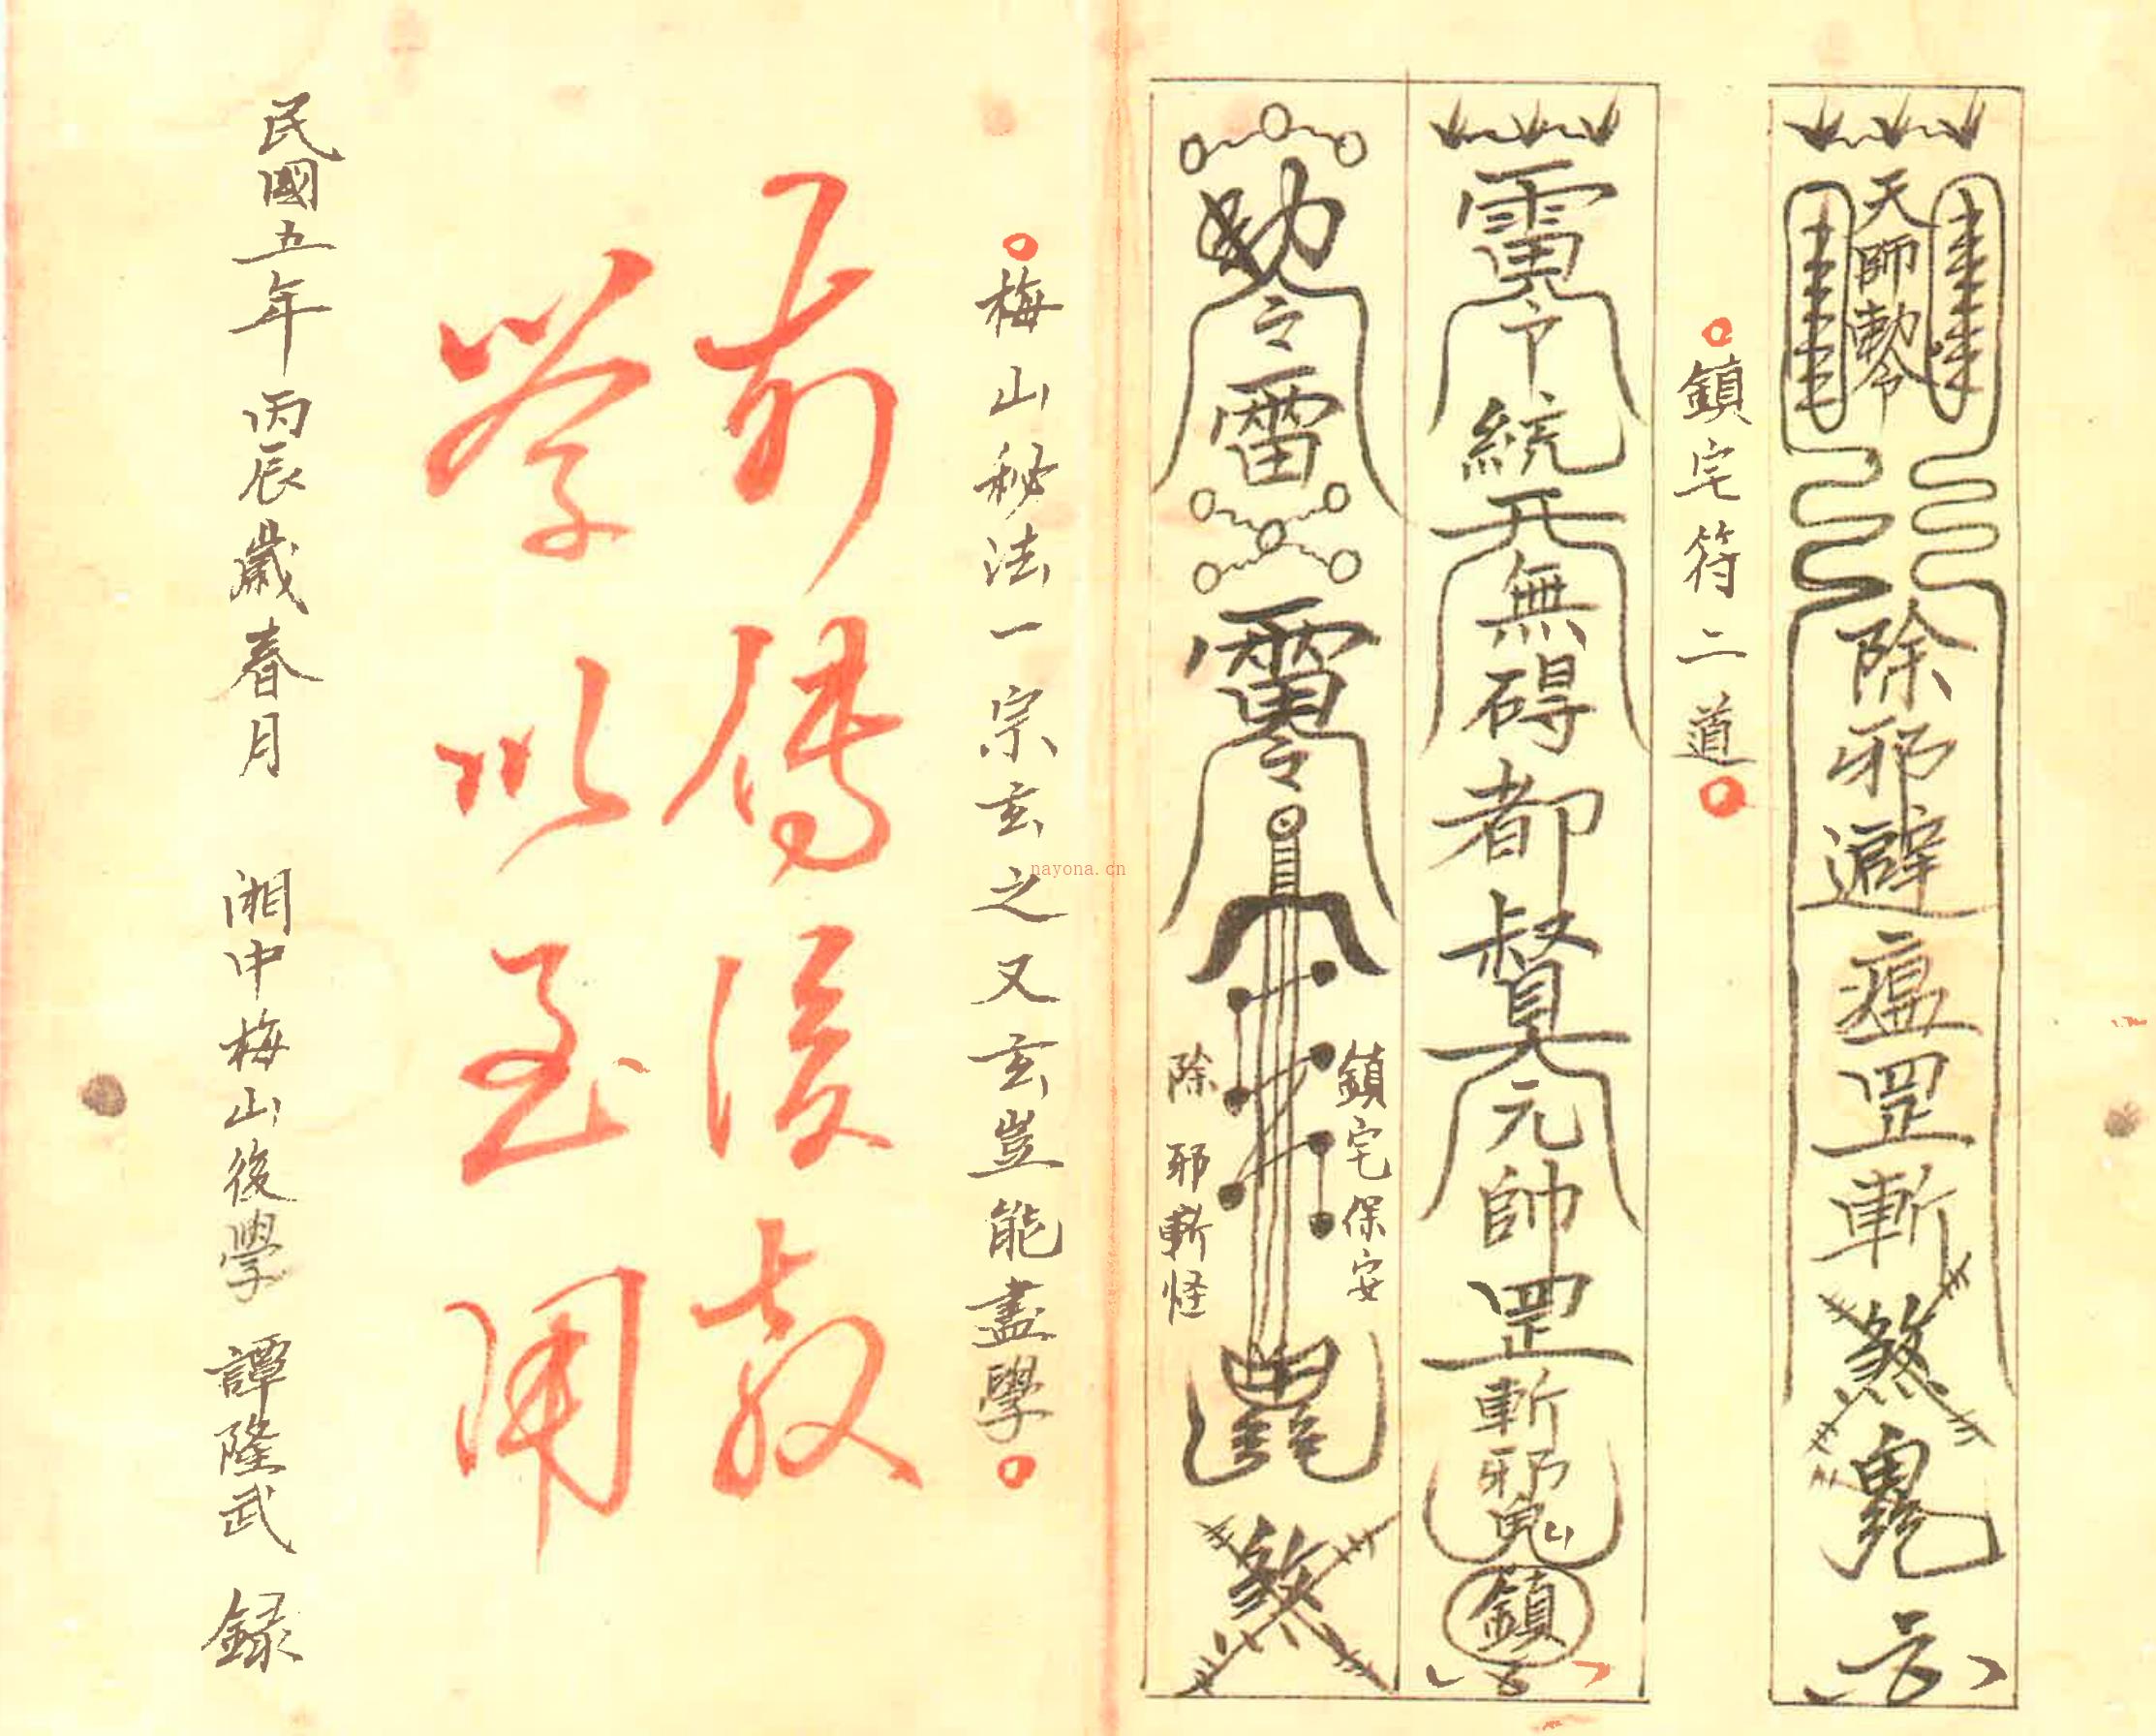 天師勅令
除邪避瘟罡斬煞
鎮宅符二道
雷令統兵無碍都督元帥罡斬邪鬼
鎮
勅令雷
雷令
鎮宅保安
除邪斬怪
煞
梅山秘法一宗玄之又玄豈能盡學
前傳後教
學以至用
民國五年丙辰歲春月 湘中梅山後學 譚隆武 録
nayona.cn